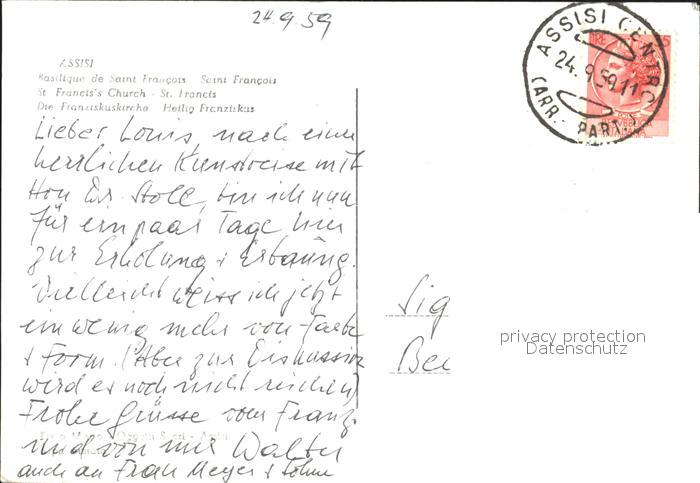 24.9.59
ASSISI
Basilique de Saint François Saint François
St Francis's Church - St. Francis
Die Franziskuskirche Heilig Franziskus
Lieber Louis, nach einer
herrlichen Kunstreise mit
Hon Dr. Stoll, bin ich nun
für ein paar Tage hier
zur Erholung + Erbauung.
Vielleicht weiss ich jetzt
ein wenig mehr von Farbe
+ Form. (Aber zur Diskussion
wird es noch nicht reichen)
Frohe Grüsse vom Franz.
und von mir Walter
auch an Frau Meyer + Söhne
ASSISI CENTRO
24.9.59.11
(ARR. PART.)
LIRE 25
Sig
Bec
privacy protection
Datenschutz